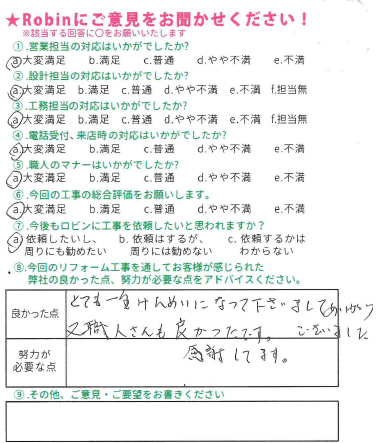 ★Robinにご意見をお聞かせください！
※該当する回答に〇をお願いいたします
①.営業担当の対応はいかがでしたか?
a.大変満足 b.満足 c.普通 d.やや不満 e.不満
②.設計担当の対応はいかがでしたか?
a.大変満足 b.満足 c.普通 d.やや不満 e.不満 f.担当無
③.工務担当の対応はいかがでしたか?
a.大変満足 b.満足 c.普通 d.やや不満 e.不満 f.担当無
④.電話受付、来店時の対応はいかがでしたか?
a.大変満足 b.満足 c.普通 d.やや不満 e.不満
⑤.職人のマナーはいかがでしたか?
a.大変満足 b.満足 c.普通 d.やや不満 e.不満
⑥.今回の工事の総合評価をお願いします。
a.大変満足 b.満足 c.普通 d.やや不満 e.不満
⑦.今後もロビンに工事を依頼したいと思われますか？
a.依頼したいし、 b. 依頼はするが、 c. 依頼するかは
周りにも勧めたい 周りには勧めない わからない
⑧.今回のリフォーム工事を通してお客様が感じられた
弊社の良かった点、努力が必要な点をアドバイスください。
とても一生けんめいになって下さいまして
良かった点
又職人さんも良かったです。 ございました
努力が
必要な点
感謝してます。
⑨.その他、ご意見・ご要望をお書きください